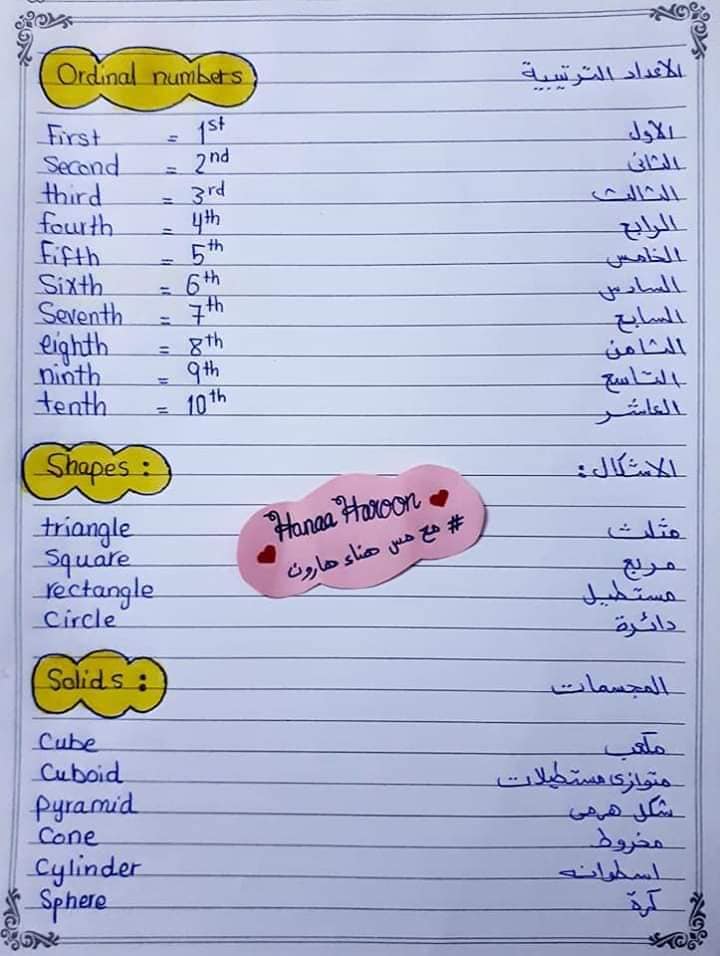 Ordinal numbers الاعداد الترتيبية
First = 1st الاول
Second = 2nd الثانى
third = 3rd الثالث
fourth = 4th الرابع
Fifth = 5th الخامس
Sixth = 6th السادس
Seventh = 7th السابع
eighth = 8th الثامن
ninth = 9th التاسع
tenth = 10th العاشر
Shapes : الاشكال :
Hanaa Haroon
# مع مس هناء هارون
triangle مثلث
Square مربع
rectangle مستطيل
Circle دائرة
Solids : المجسمات
Cube مكعب
Cuboid متوازى مستطيلات
pyramid شكل هرمى
Cone مخروط
Cylinder اسطوانه
Sphere كرة